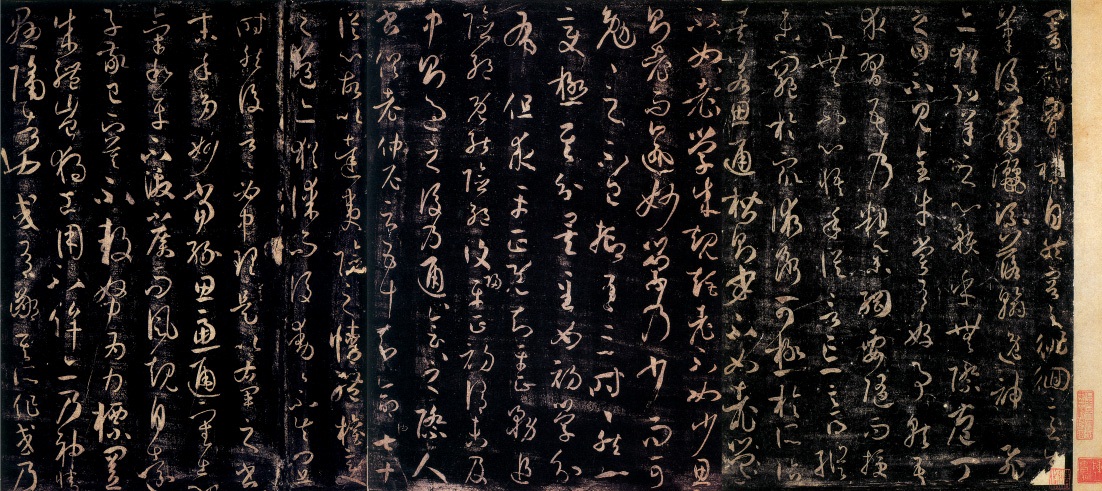 矩闇於胸襟自然容與徘徊意先
筆後瀟灑流落翰逸神飛
亦猶弘羊之心預乎無際庖丁
之目不見全牛嘗有好事就吾
求習吾乃粗舉綱要隨而授
之無不心悟手從言忘意得縱
未窮於眾術斷可極於所詣
矣若思通楷則少不如老學
不如老學成規矩老不如少思
則老而逾妙學乃少而可
勉勉之不已抑有三時時然一
變極其分矣至如初學分
布但求平正既知平正務追
險絕既能險絕復歸平正初謂未及
中則過之後乃通會通會之際人
書俱老仲尼云五十知命七十
從心故以達夷險之情體權變
之道亦猶謀而後動動不失宜
時然後言言必中理矣是以右軍之書
末年多妙當緣思慮通審志
氣和平不激不厲而風規自遠
子敬已下莫不鼓努為力標置
成體豈獨工用不侔亦乃神情
懸隔者也或有鄙其所作或乃